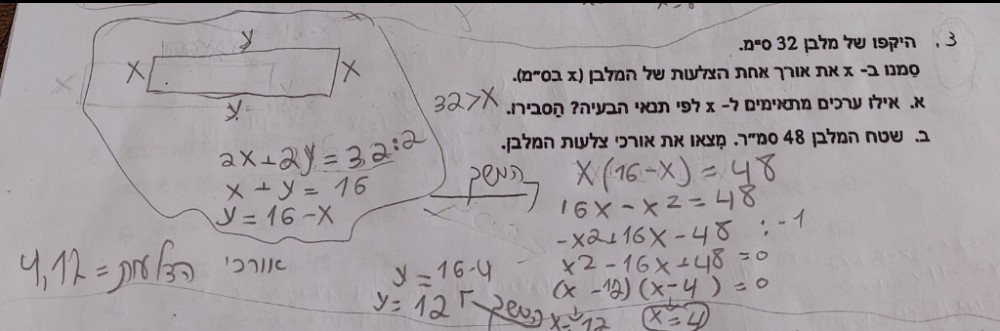 3. היקפו של מלבן 32 ס"מ.
סַמנו ב- x את אורך אחת הצלעות של המלבן (x בס"מ).
א. אילו ערכים מתאימים ל- x לפי תנאי הבעיה? הַסבירו. 32>x
ב. שטח המלבן 48 סמ"ר. מִצאו את אורכי צלעות המלבן.
y
x x
y
2x+2y=32 :2
x+y=16
y=16-x
המשך
x(16-x)=48
16x-x2=48
-x2+16x-48 :-1
x2-16x+48=0
(x-12)(x-4)=0
x=12 x=4
המשך
y=16-4
y=12
אורכי הצלעות = 4,12